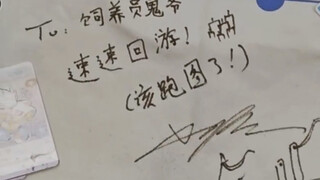 To: 饲养员鬼爷
速速回游!
(该跑图了!)